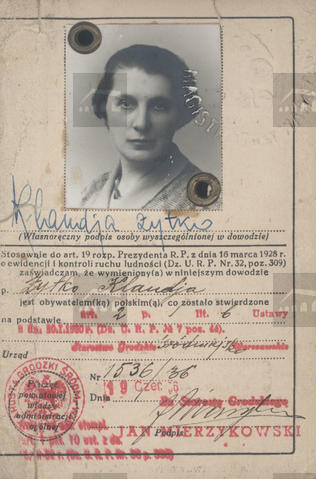 MAGIST
Klaudja Żytko
(Własnoręczny podpis osoby wyszczególnionej w dowodzie)
Stosownie do art. 19 rozp. Prezydenta R. P. z dnia 16 marca 1928 r.
o ewidencji i kontroli ruchu ludności (Dz. U. R. P. Nr. 32, poz. 309)
zaświadczam, że wymieniony(a) w niniejszym dowodzie
Żytko Klaudja
jest obywatelem(ką) polskim(ą), co zostało stwierdzone
na podstawie art. 2 p. 1 lit. b Ustawy
z dn. 20.I.1920 r. (Dz. U. R. P. № 7 poz. 44).
Starostwo Grodzkie Śródmiejsko Warszawskie
Urząd
Nr 1536/36
Dnia 19 Czer 36
Za Starostę Grodzkiego
Pieczęć
powiatowej
władzy
administracji
ogólnej
Podpis
JAN MIERZYKOWSKI